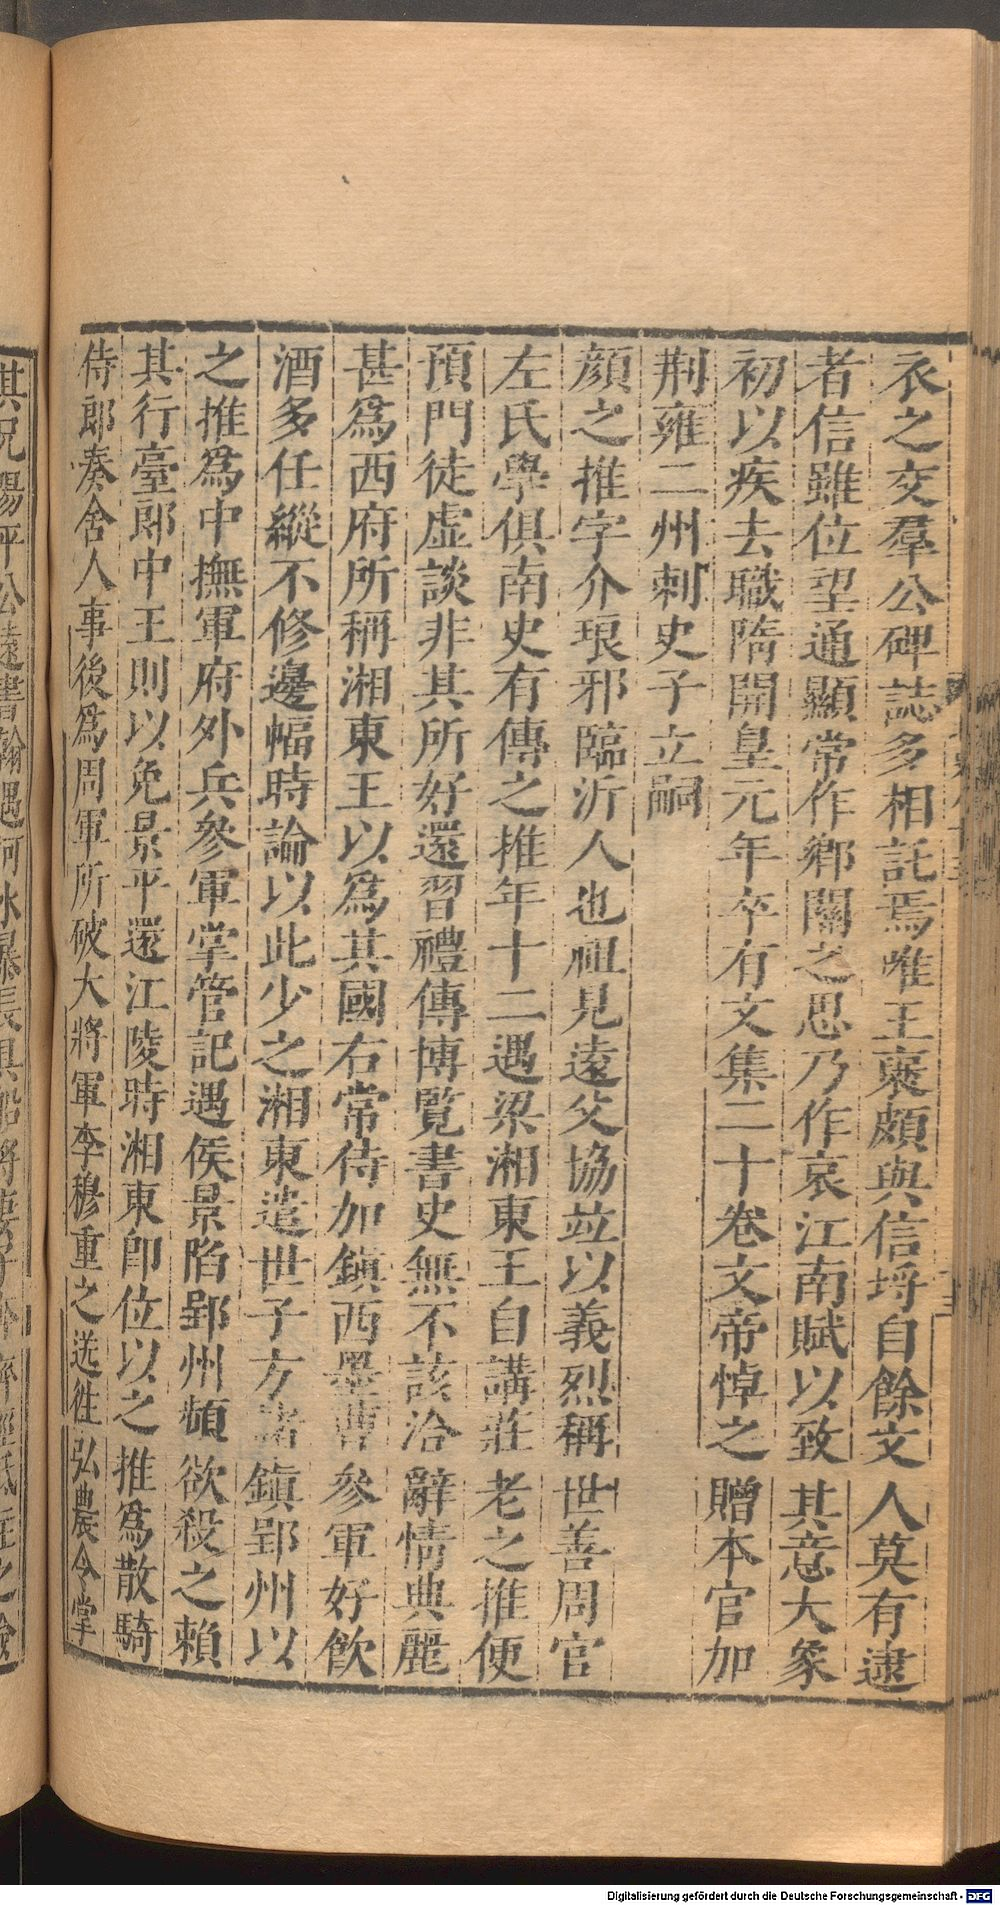 衣之交羣公碑誌多相託焉唯王褒頗與信埒自餘文人莫有逮
者信雖位望通顯常作鄉關之思乃作哀江南賦以致其意大象
初以疾去職隋開皇元年卒有文集二十卷文帝悼之贈本官加
荆雍二州刺史子立嗣
顏之推字介琅邪臨沂人也祖見遠父協竝以義烈稱世善周官
左氏學俱南史有傳之推年十二遇梁湘東王自講莊老之推便
預門徒虛談非其所好還習禮傳博覽書史無不該洽辭情典麗
甚爲西府所稱湘東王以爲其國右常侍加鎮西墨曹參軍好飲
酒多任縱不修邊幅時論以此少之湘東遣世子方諸鎮郢州以
之推爲中撫軍府外兵參軍掌管記遇侯景陷郢州頻欲殺之賴
其行臺郎中王則以免景平還江陵時湘東即位以之推爲散騎
侍郎奏舍人事後爲周軍所破大將軍李穆重之送往弘農令掌
其兄陽平公遠書翰遇河水暴長具船將妻子奔齊經砥柱之險
Digitalisierung gefördert durch die Deutsche Forschungsgemeinschaft - DFG